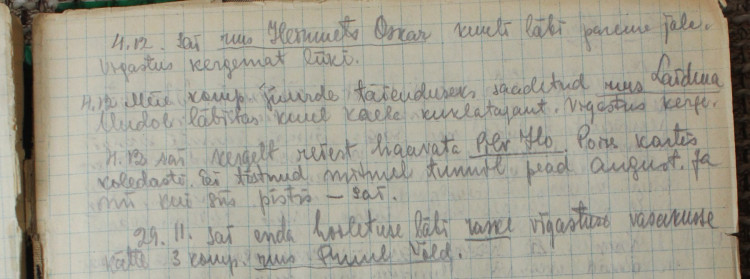 4.12. sai rms Hermets Oskar kuuli läbi parema jala.
Vigastus kergemat liiki.
4.12 Meie komp. juurde täienduseks saadetud rms Laidma
läbistas kuul kaela kuklatagant. Vigastus kerge.
sai kergelt reiest haavata Ilo Poiss kartis
koledasti. Ei tõstnud mitmel tunnil pead august. Ja
nii kui siis pistis – sai.
29. 11. sai enda hooletuse läbi raske vigastuse vasakusse
kätte 3 komp. rms